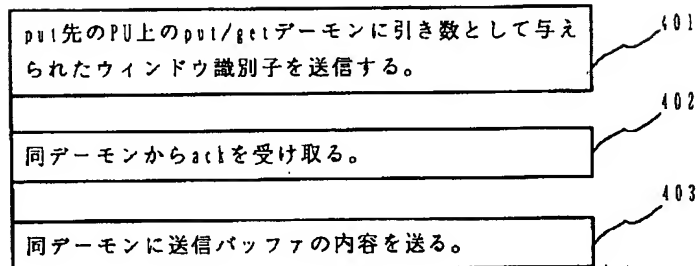 put先のPU上のput/getデーモンに引き数として与え
られたウィンドウ識別子を送信する。
401
同デーモンからackを受け取る。
402
同デーモンに送信バッファの内容を送る。
403